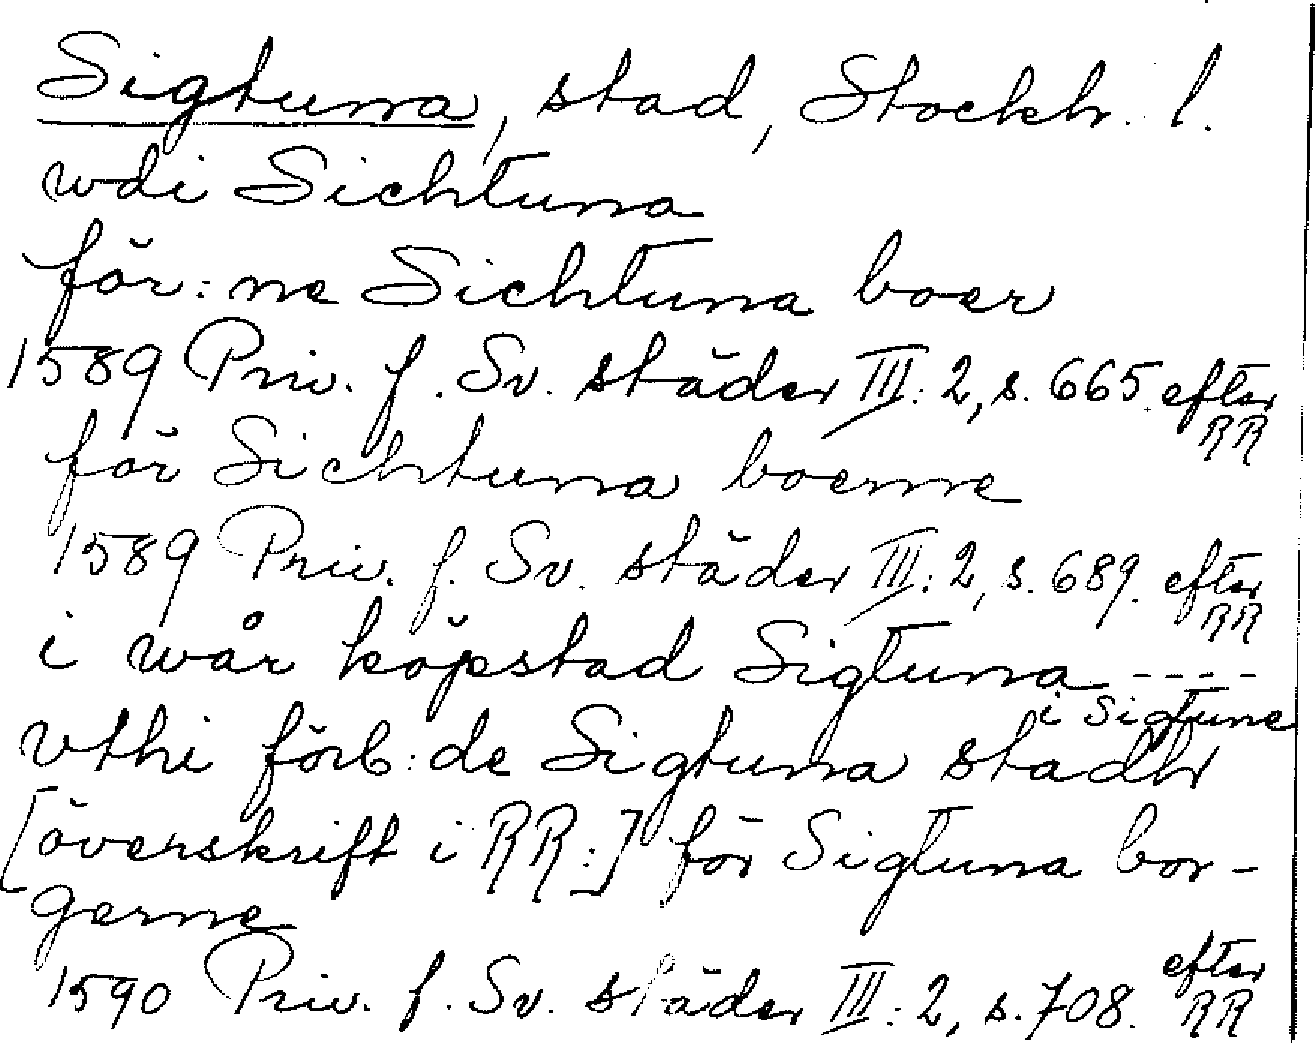 Sigtuna, stad, Stockh. l.
wdi Sichtuna
för:ne Sichtuna boer
1589 Priv. f. Sv. städer III:2, s. 665. efter RR
för Sichtuna boerne
1589 Priv. f. Sv. städer III:2, s. 689. efter RR
i wår köpstad Sigtuna ----
i Sigtune
vthi förb:de Sigtuna stadh
[överskrift i RR:] för Sigtuna bor-
gerne
1590 Priv. f. Sv. städer III:2, s. 708. efter RR